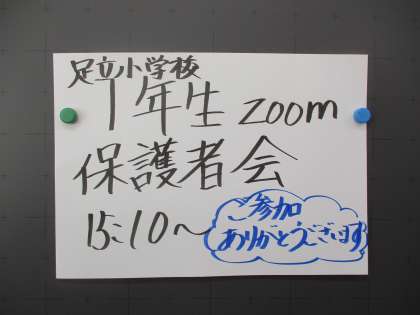 足立小学校
1年生 zoom
保護者会
15:10〜
ご参加
ありがとうございます